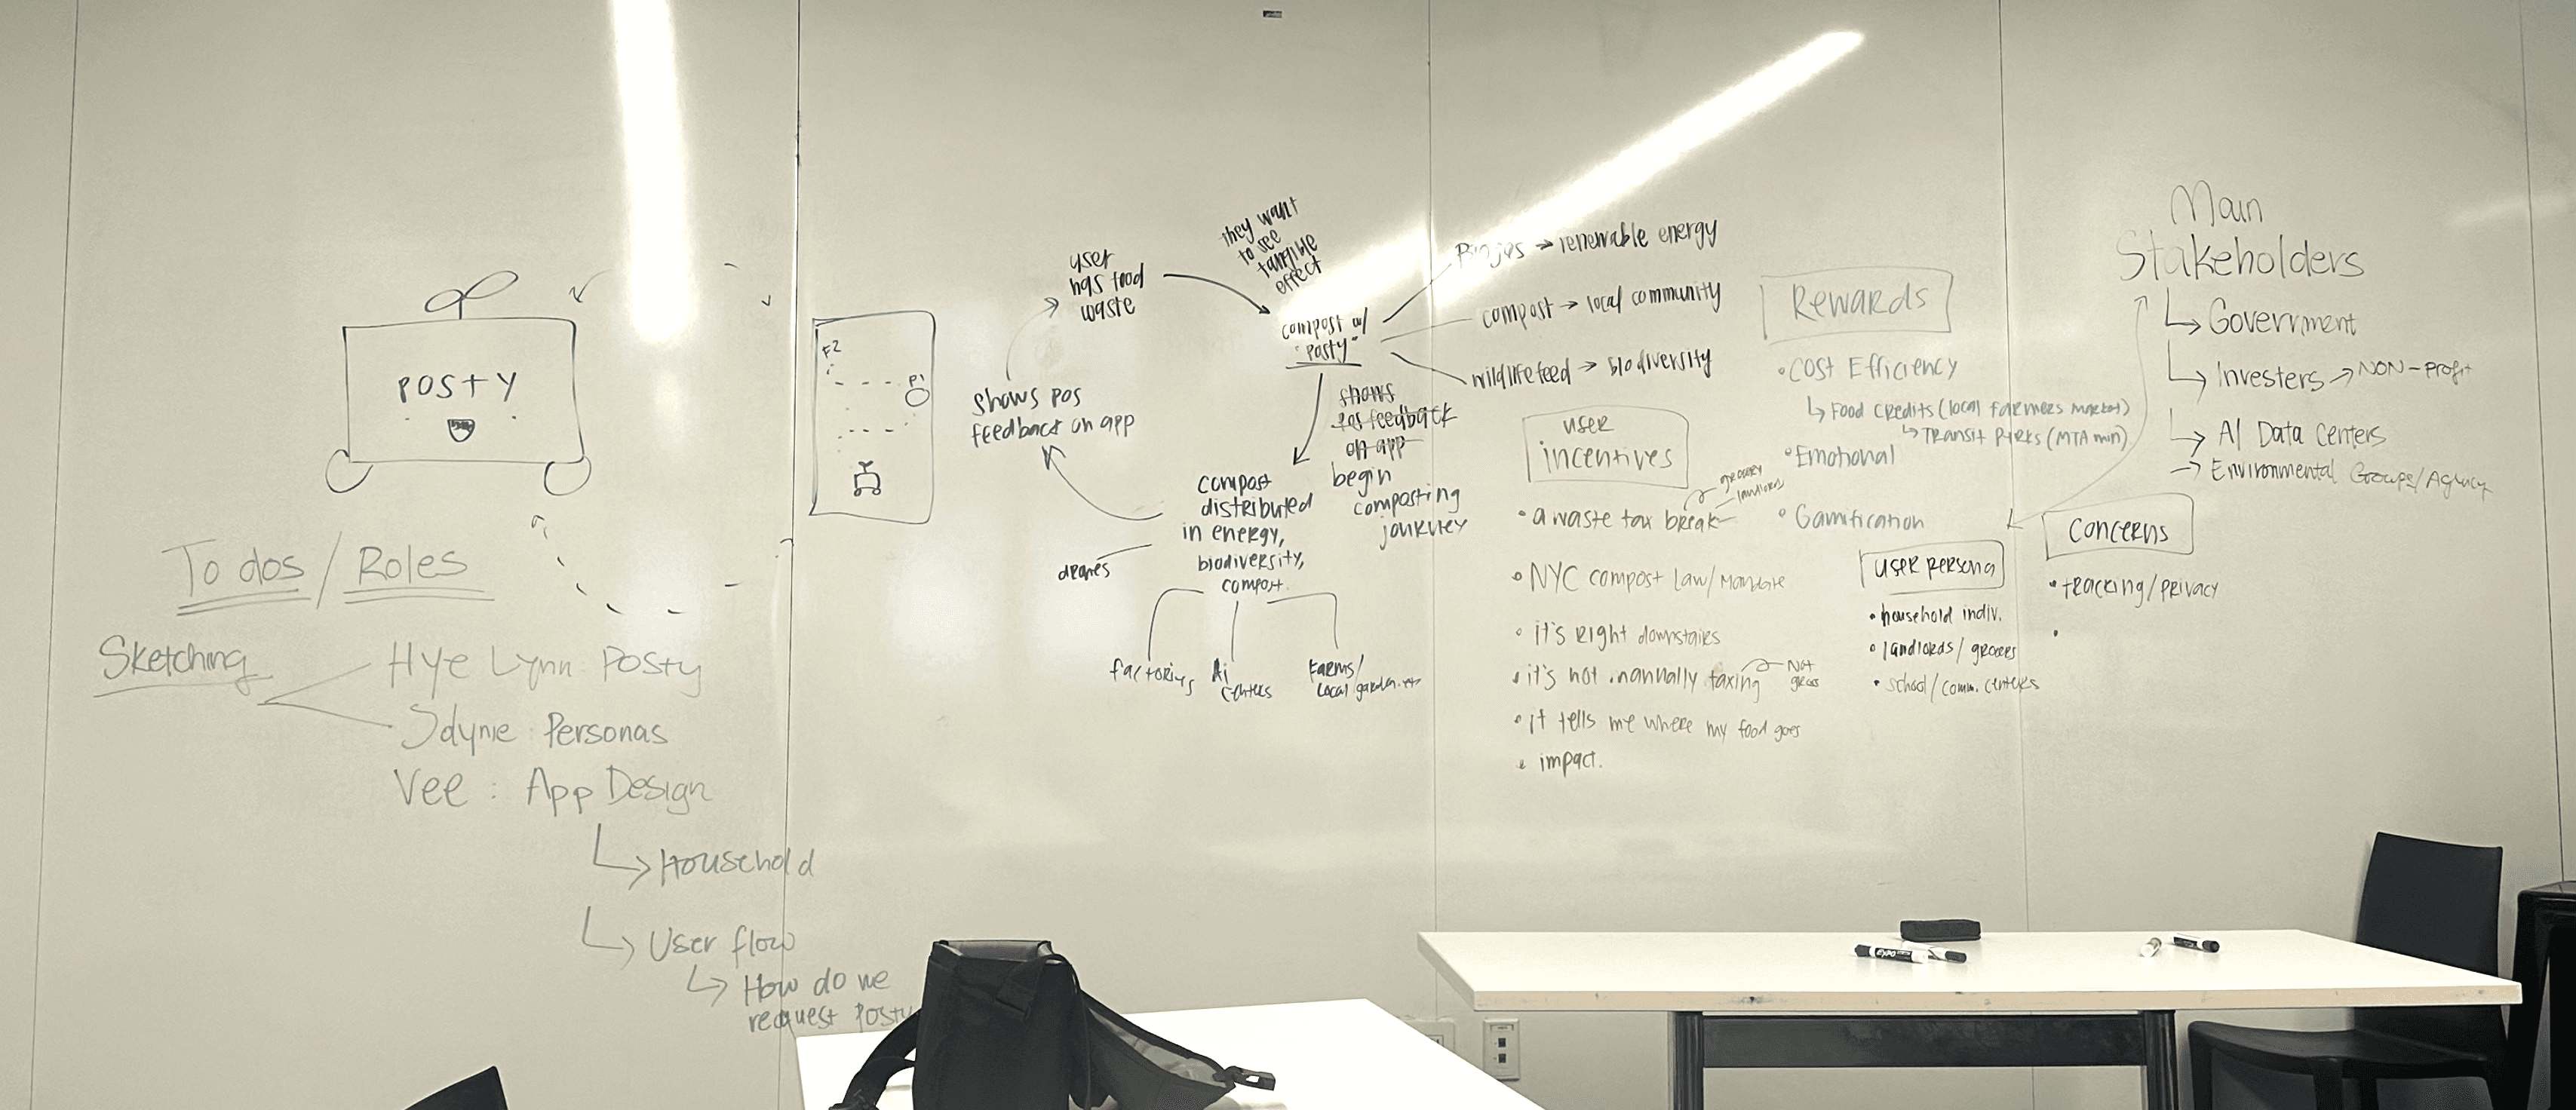 POSTY
To dos / Roles
Sketching
Hye Lynn: Posty
Jdynie: Personas
Vee: App Design
Household
User flow
How do we
request Posty
F2
P1
user
has food
waste
they want
to see
tangible
effect
compost w/
"Posty"
shows pos
feedback on app
shows
pos feedback
on app
begin
composting
journey
compost
distributed
in energy,
biodiversity,
compost.
drones
factories
Ai
centers
Farms/
Local garden
Biogas → renewable energy
compost → local community
wildlife feed → biodiversity
user
incentives
• a waste tax break
grocery
landlords
• NYC compost law/Mandate
• it's right downstairs
• it's not manually taxing
Not
gross
• it tells me where my food goes
• impact.
Rewards
• Cost Efficiency
Food credits (local farmers market)
Transit Perks (MTA min)
• Emotional
• Gamification
user persona
• household indiv.
• landlords/ grocers
• school/comm. centers
Main
Stakeholders
Government
Investers → NON-profit
AI Data Centers
→ Environmental Groups/Agency
Concerns
• tracking/privacy
•